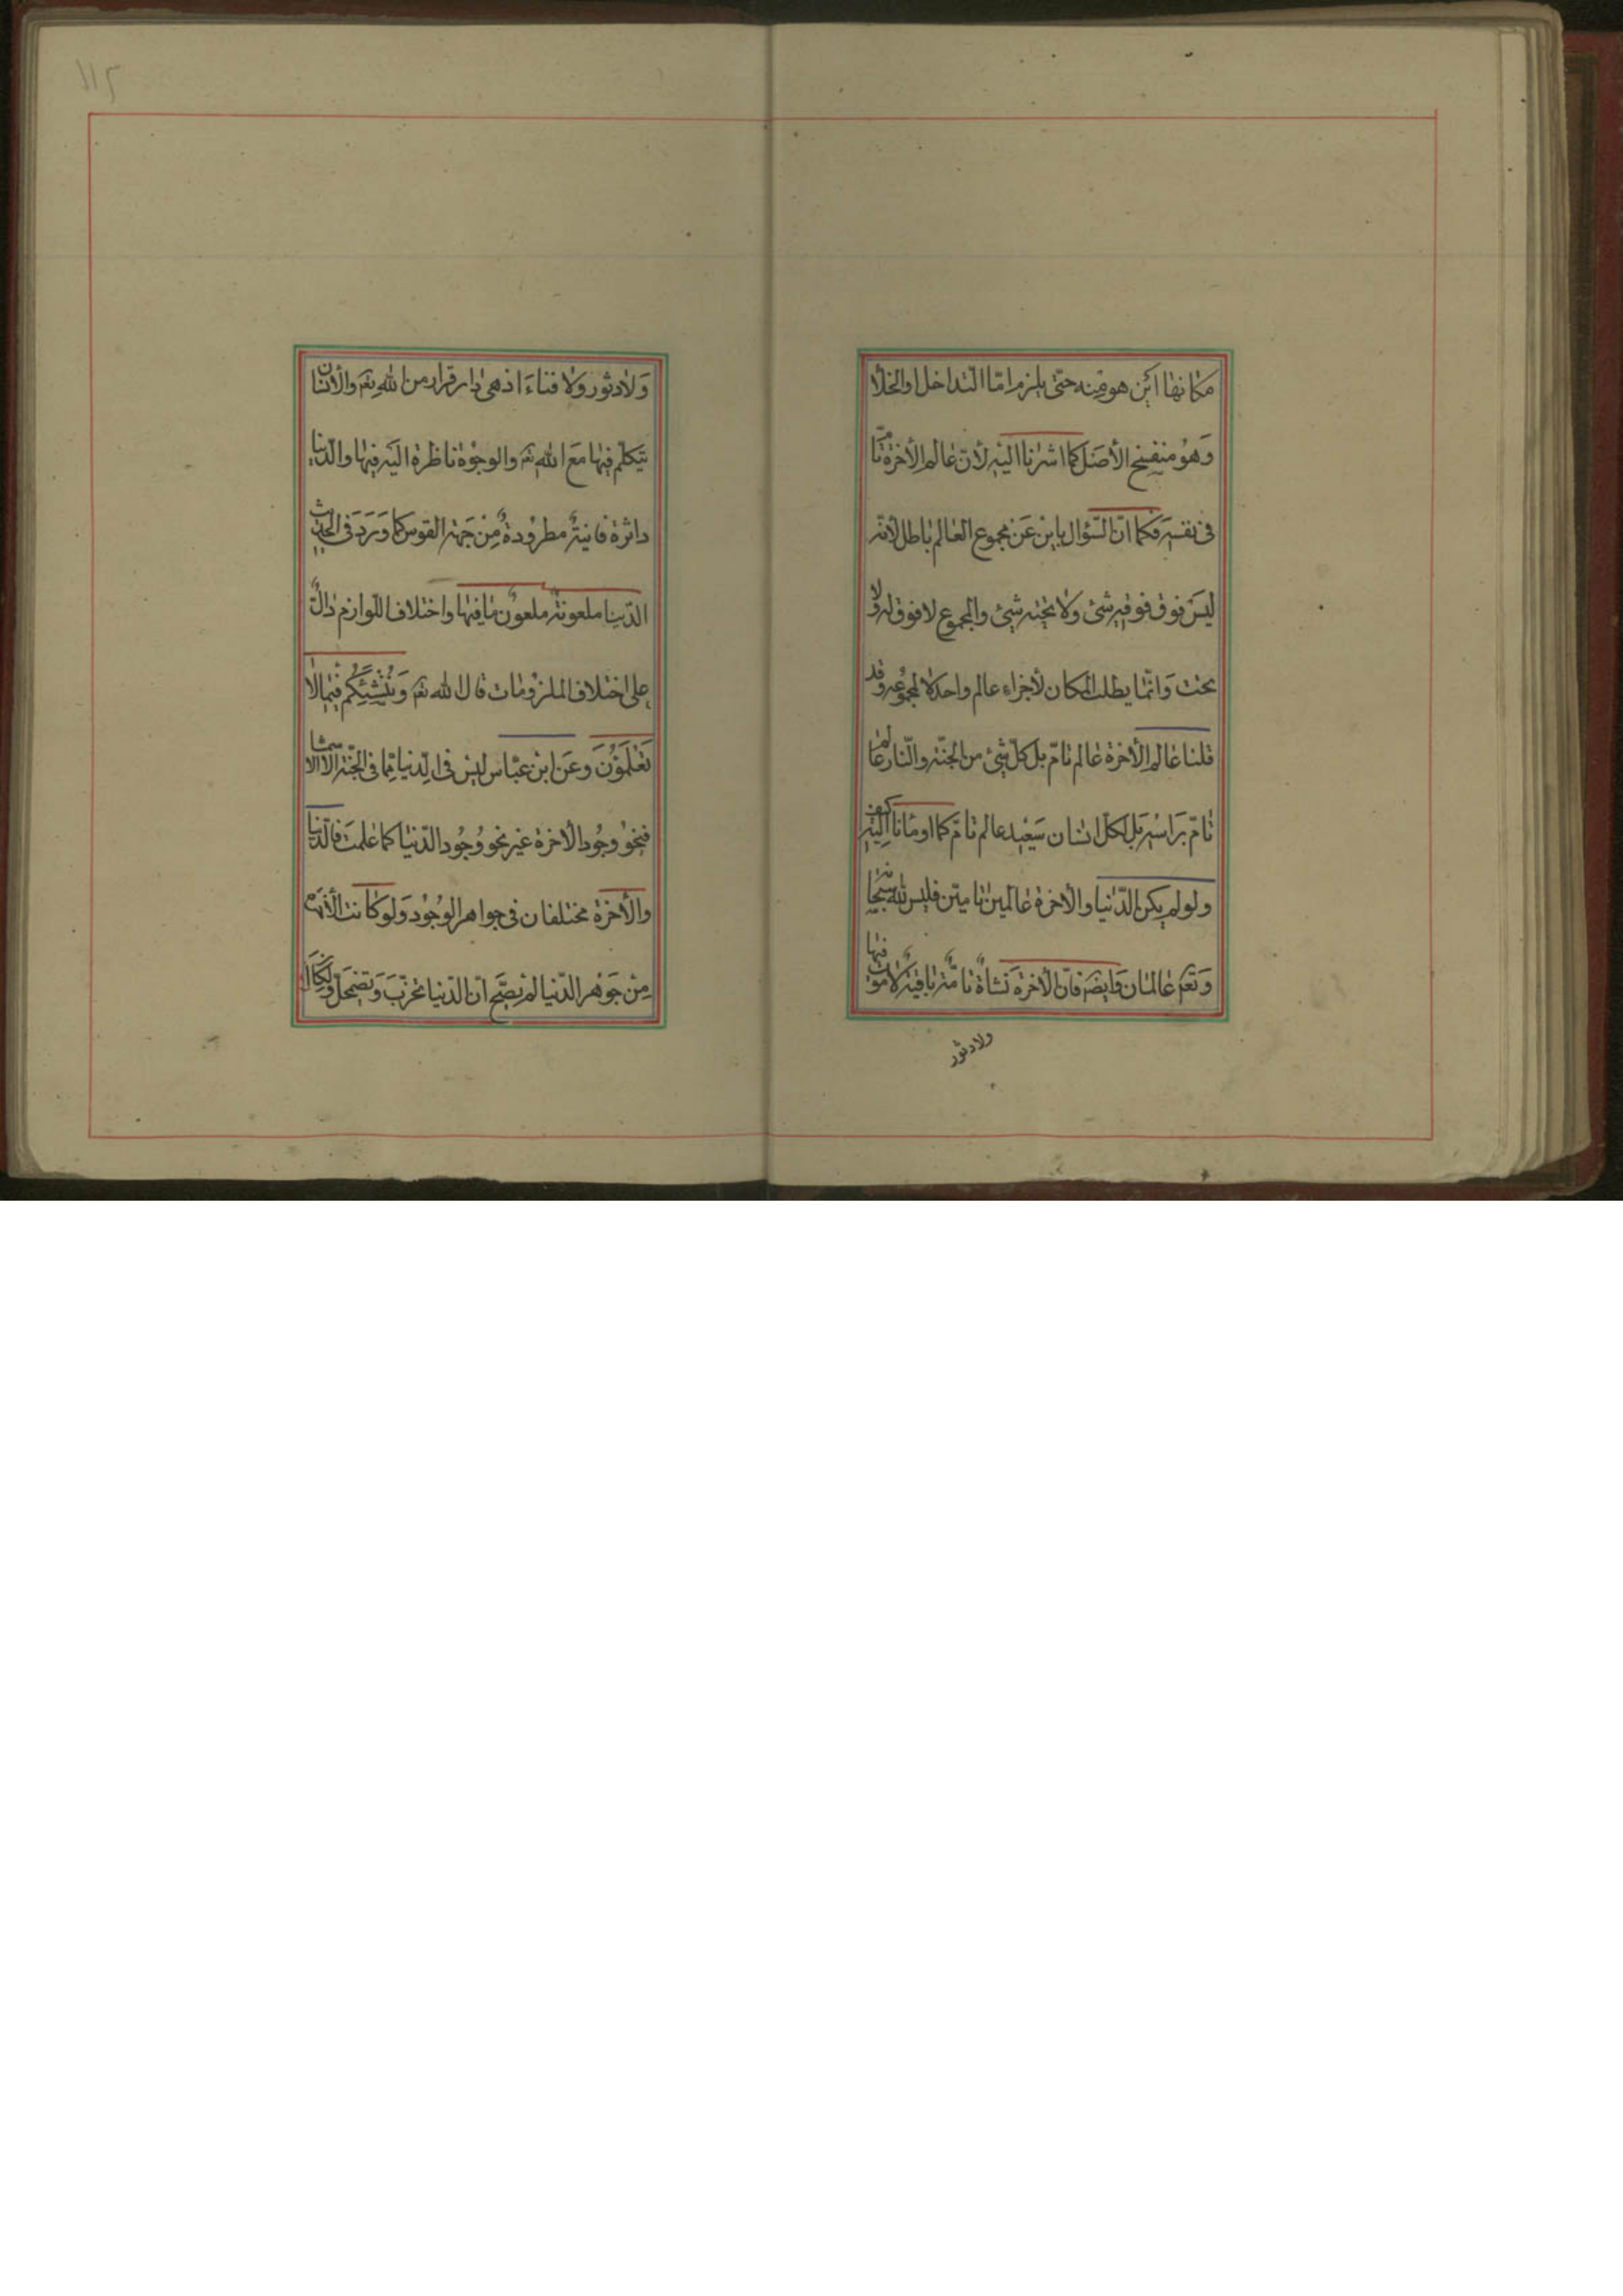 مكانها اين هو منه حتى يلزم اما التداخل او الخلأ
وهو منفسخ الأصل كما اشرنا اليه لأن عالم الأخرة تامّ
فى نفسه فكما انّ السّؤال باين عن مجموع العالم باطل لأنّه
ليس فوق فوقه شئ ولا تحته شئ والمجموع لا فوق له ولا
تحت وانّما يطلب المكان لأجزاء عالم واحد لا لمجموعه وقد
قلنا عالم الأخرة عالم تامّ بل كلّ شئ من الجنّة والنّار عالم
تامّ براسه بل لكلّ انسان سعيد عالم تامّ كما اومأنا اليه كيف
ولو لم يكن الدّنيا والأخرة عالمين تامّين فليس لله سبحانه
وتع عالمان وايضً فانّ الأخرة نشأة تامّة باقية لا موت فيها
ولا دثور
ولا دثور ولا فناء اذ هى دار قرار من الله تع والأنسان
يتكلّم فيها مع الله تع والوجوه ناظرة اليه فيها والدّنيا
داثرة فانية مطرودة من جهة القوس كما ورد فى الحديث
الدّنيا ملعونة ملعون ما فيها واختلاف اللّوازم دالّ
على اختلاف الملزومات قال الله تع وننشئكم فيما لا
تعلمون وعن ابن عبّاس ليس فى الدّنيا ممّا فى الجنّة الّا الأسماء
فنحو وجود الأخرة غير نحو وجود الدّنيا كما علمت فالدّنيا
والأخرة مختلفان فى جواهر الوجود ولو كانت الأخرة
من جوهر الدّنيا لم يصحّ انّ الدّنيا تخرّب وتضمحلّ ولكان
١١٢